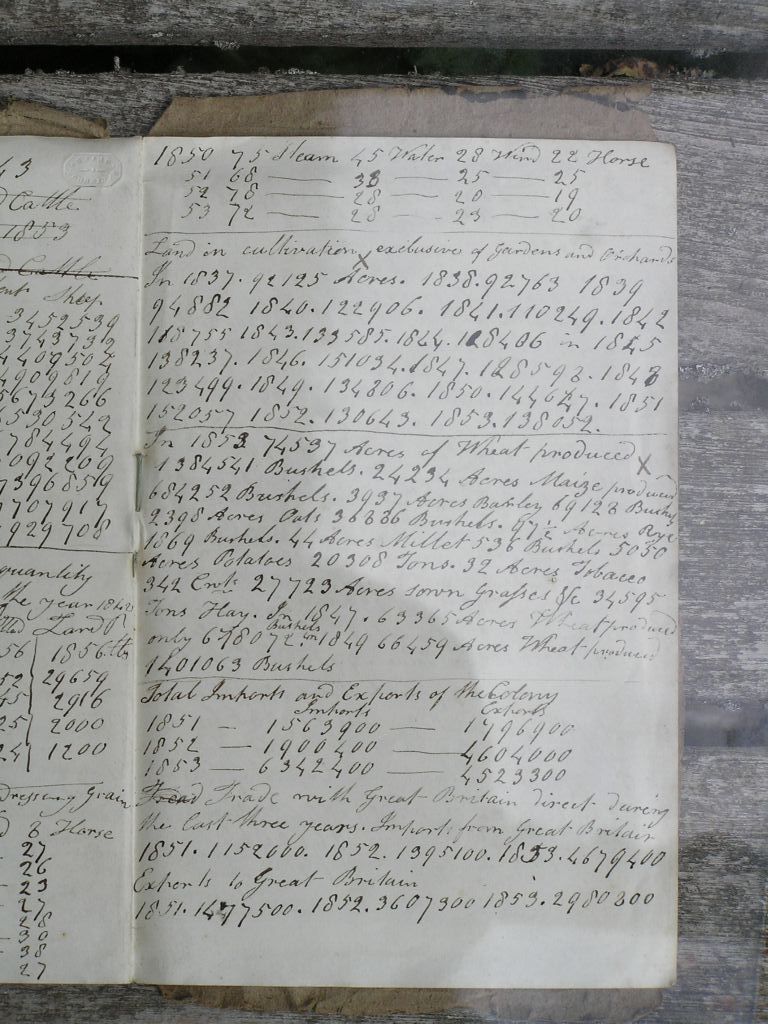 43
Cattle
1853
Cattle
Sheep
3452539
3743732
4409504
4909819
5673266
6530542
784494
6092209
7396859
7707917
7929708
quantity
the year 1842
Land
56 1856
52 29659
45 2916
25 2000
24 1200
Dressing Grain
& Horse
27
26
23
27
28
30
38
27
1850 75 Steam 45 Water 28 Wind 22 Horse
51 68 — 38 — 25 — 25
52 78 — 28 — 20 — 19
53 72 — 28 — 23 — 20
Land in cultivation exclusive of Gardens and Orchards
In 1837. 92125 Acres. 1838. 92763 1839
94882 1840. 122906. 1841. 110249. 1842
118755 1843. 133585. 1844. 128406 in 1845
138237. 1846. 151034. 1847. 128592. 1848
123499. 1849. 134806. 1850. 144647. 1851
152057 1852. 130643. 1853. 138052.
In 1853 74537 Acres of Wheat produced X
1384541 Bushels. 24234 Acres Maize produced
684252 Bushels. 3937 Acres Barley 69128 Bushels
2398 Acres Oats 36886 Bushels. 97½ Acres Rye
1869 Bushels. 44 Acres Millet 536 Bushels 5050
Acres Potatoes 20308 Tons. 32 Acres Tobacco
342 Cwts 27723 Acres sown Grasses &c 34595
Tons Hay. In 1847. 63365 Acres Wheat produced
only 678072 Bushels in 1849 66459 Acres Wheat produced
1401063 Bushels
Total Imports and Exports of the Colony
Imports Exports
1851 — 1563900 — 1796900
1852 — 1900400 — 4604000
1853 — 6342400 — 4523300
Tread Trade with Great Britain direct during
the last three years. Imports from Great Britain
1851. 1152000. 1852. 1395100. 1853. 4679400
Exports to Great Britain
1851. 1477500. 1852. 3607300 1853. 2980800